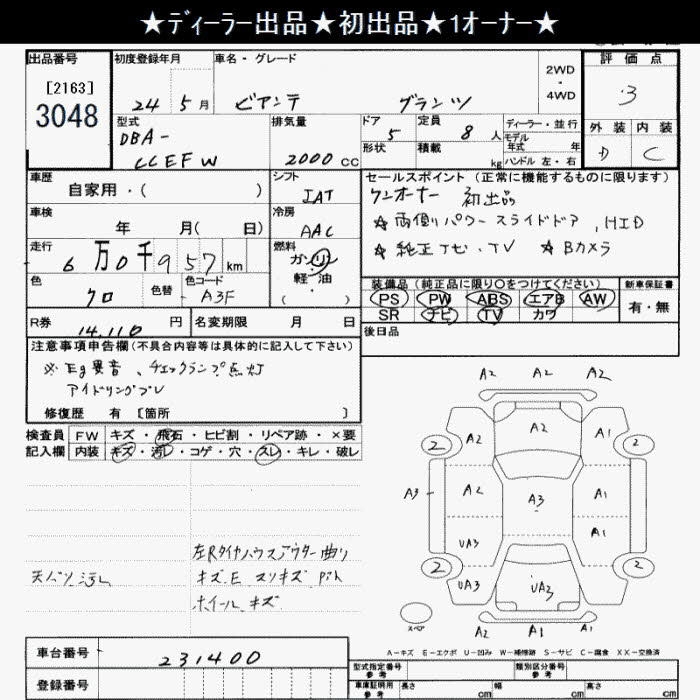 ★ディーラー出品★初出品★1オーナー★
出品番号 初度登録年月 車名・グレード 評価点
[2163]
3048
24 5月 ビアンテ グランツ
2WD
・
4WD
3
型式 DBA-
CCEFW
排気量
2000cc
ドア 5
定員 8人
形状 積載 kg
ディーラー・並行
モデル年式 年
ハンドル 左・右
外装 内装
D C
車歴 自家用・( )
シフト
IAT
セールスポイント (正常に機能するものに限ります)
ワンオーナー 初出品
★両側パワースライドドア、HID
★純正ナビ、TV ★Bカメラ
車検 年 月( 日)
冷房
AAC
走行 6万0千957km
燃料
ガソリン
軽・油
( )
色 クロ
色替
色コード A3F
装備品(純正品に限り○をつけてください)
PS PW ABS エアB AW
SR ナビ TV カワ
新車保証書
有・無
R券 14.110円
名変期限 月 日
後日品
注意事項申告欄(不具合内容等は具体的に記入して下さい)
※Eg異音、チェックランプ点灯
アイドリングブレ
修復歴 有 [箇所 ]
検査員記入欄
FW キズ・飛石・ヒビ割・リペア跡・×要
内装 キズ・汚レ・コゲ・穴・スレ・キレ・破レ
天バリ汚レ
左Rタイヤハウスアウター曲り
キズ、E スリキズ
ホイールキズ
A2 A2 A2
A2 A2 A1
2 2
A3 A2 A3 A1
UA3 A1
2 2
UA3 UA3
スペア
A2 A1 A1
A-キズ E-エクボ U-凹み W-補修跡 S-サビ C-腐食 XX-交換済
車台番号 231400
登録番号
型式指定番号 参考
類別区分番号 参考
車庫証明用 参考 長さ cm 幅 cm 高さ cm